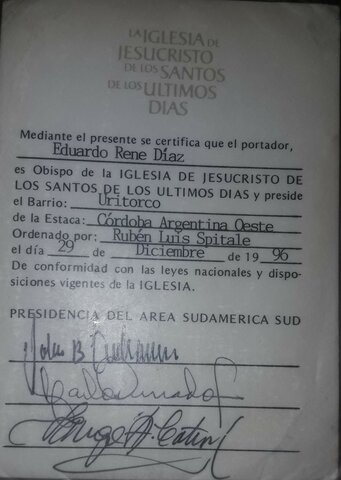 LA IGLESIA DE
JESUCRISTO
DE LOS SANTOS
DE LOS ULTIMOS
DIAS
Mediante el presente se certifica que el portador,
Eduardo Rene Díaz
es Obispo de la IGLESIA DE JESUCRISTO DE
LOS SANTOS DE LOS ULTIMOS DIAS y preside
el Barrio: Uritorco
de la Estaca: Córdoba Argentina Oeste
Ordenado por: Rubén Luis Spitale
el día 29 de Diciembre de 19 96
De conformidad con las leyes nacionales y dispo-
siciones vigentes de la IGLESIA.
PRESIDENCIA DEL AREA SUDAMERICA SUD
John B